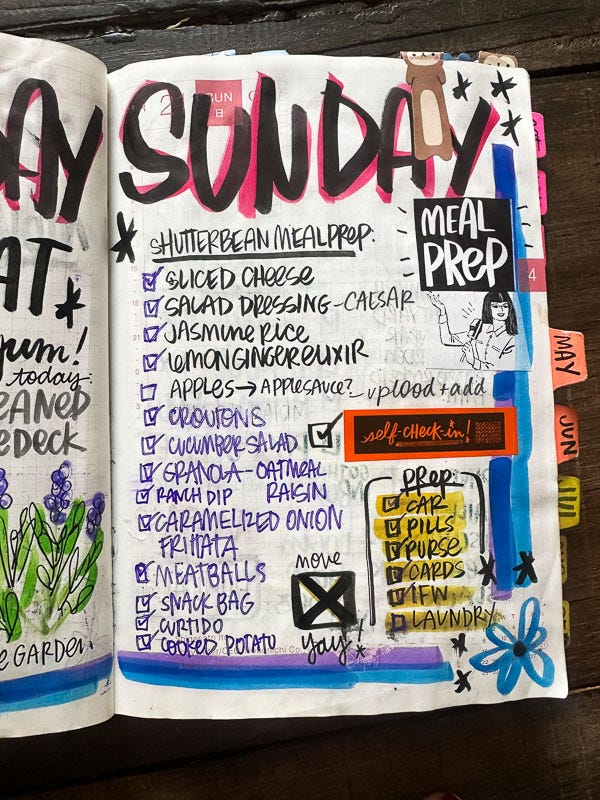 AY
AT
yum!
today.
EANED
E DECK
E GARDEN.
SUN
日
SUNDAY
SHUTTERBEAN MEALPREP.
SLICED CHEESE
SALAD DRESSING - CAESAR
JASMINE RICE
LEMON GINGER ELIXIR
APPLES → APPLESAUCE? - upload + add
CROUTONS
CUCUMBER SALAD
GRANOLA - OATMEAL
RAISIN
RANCH DIP
CARAMELIZED ONION
FRITTATA
MEATBALLS
SNACK BAG
CURTIDO
COOKED POTATO
MEAL
PREP
self-CHECK-in!
PREP
CAR
PILLS
PURSE
CARDS
IFW
LAUNDRY
move
yay!
4
MAY
JUN